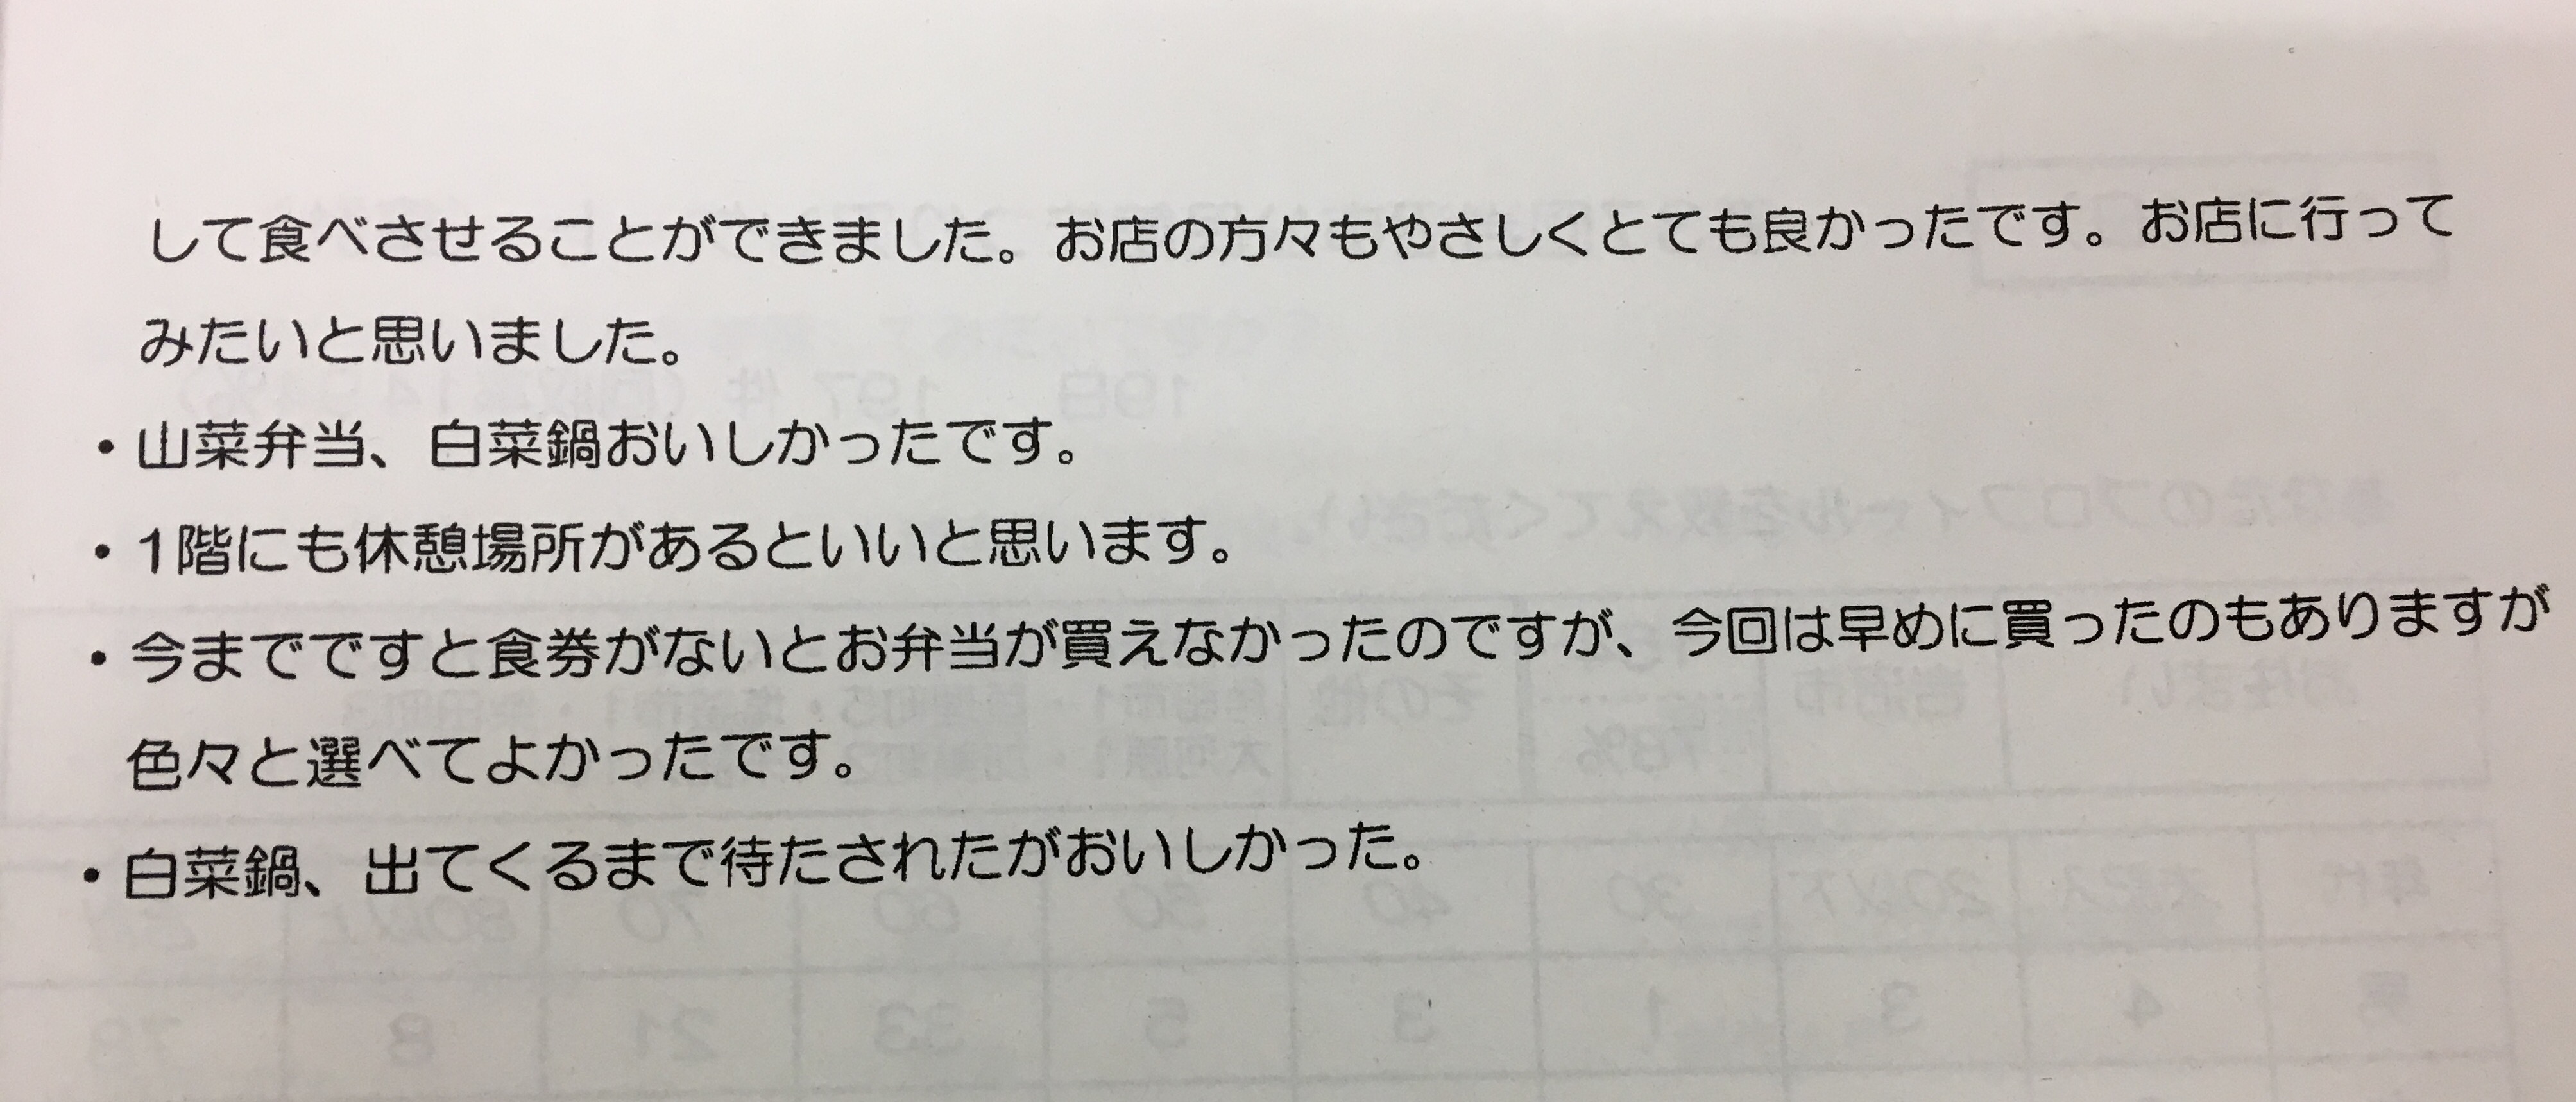 して食べさせることができました。お店の方々もやさしくとても良かったです。お店に行って
みたいと思いました。
・山菜弁当、白菜鍋おいしかったです。
・1階にも休憩場所があるといいと思います。
・今まででですと食券がないとお弁当が買えなかったのですが、今回は早めに買ったのもありますが
色々と選べてよかったです。
・白菜鍋、出てくるまで待たされたがおいしかった。